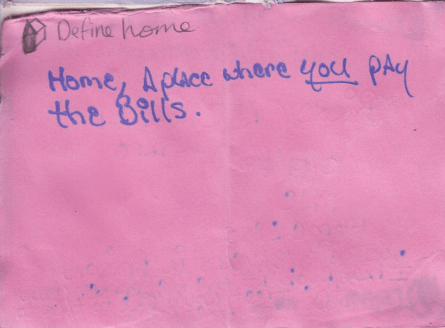 Define home
Home, A place where you pAy
the Bills.